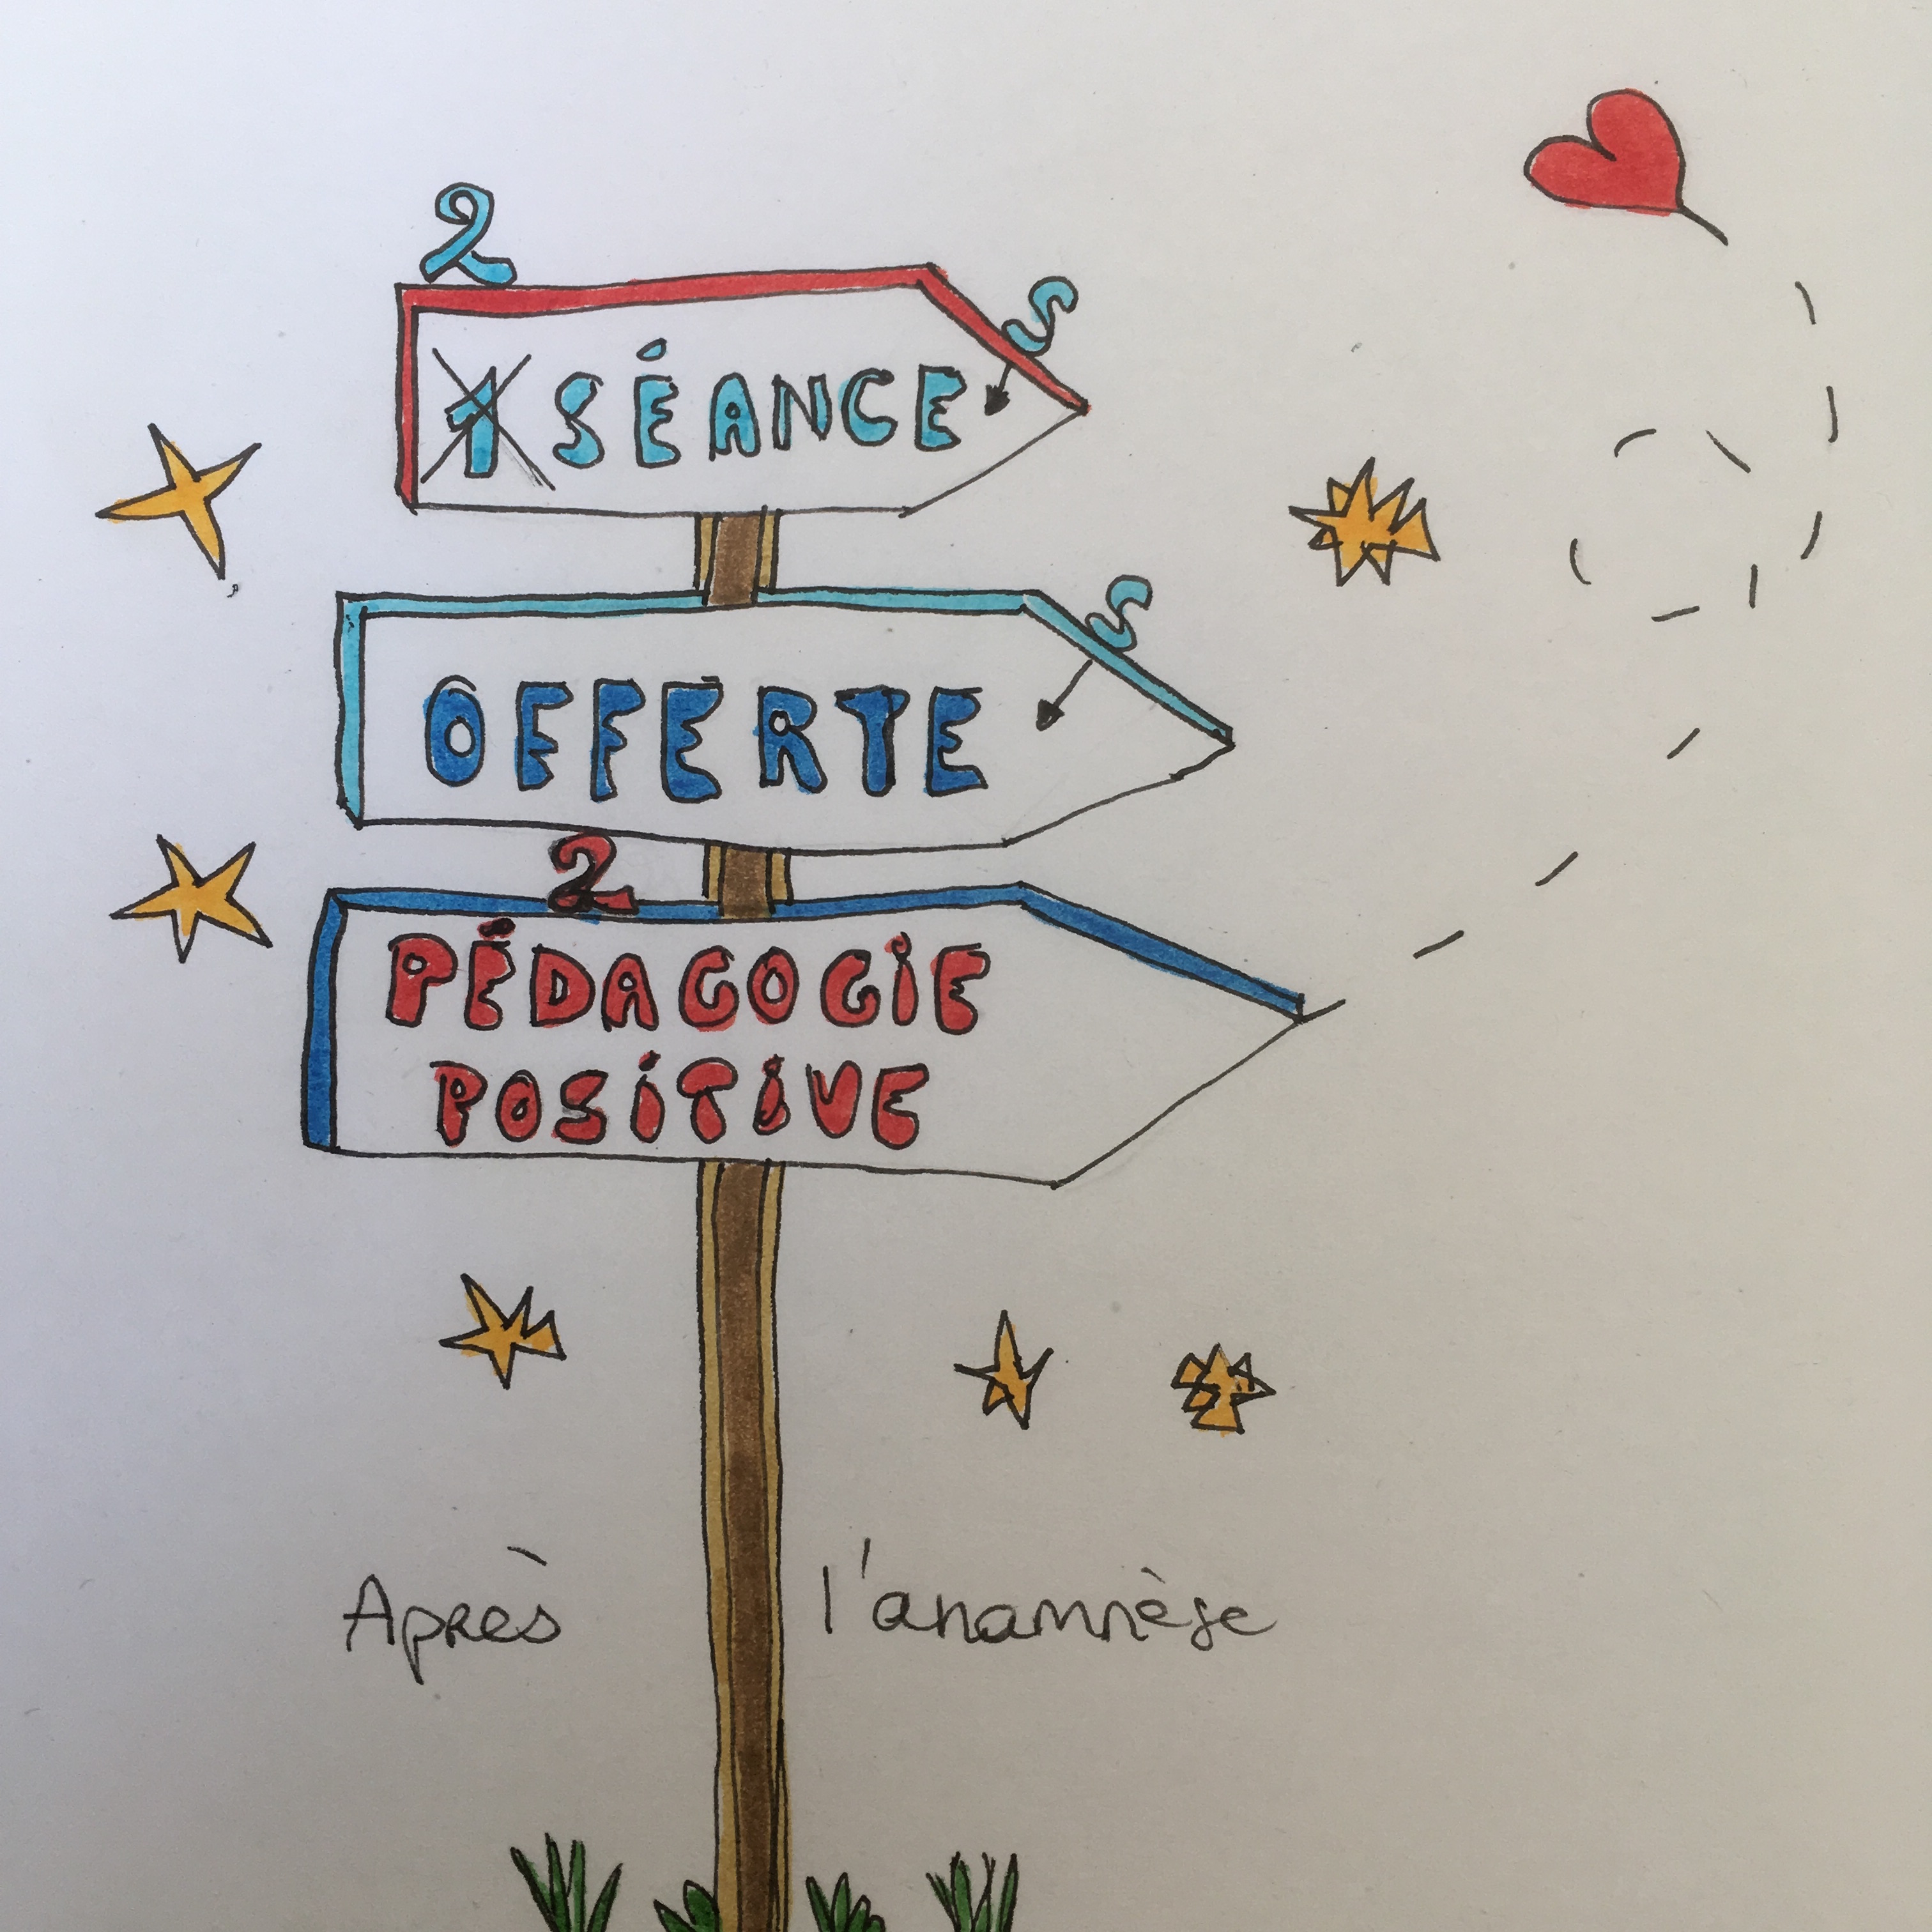 2
1 SÉANCE S
OFFERTE S
2
PÉDAGOGIE
POSITIVE
Après l'anamnèse